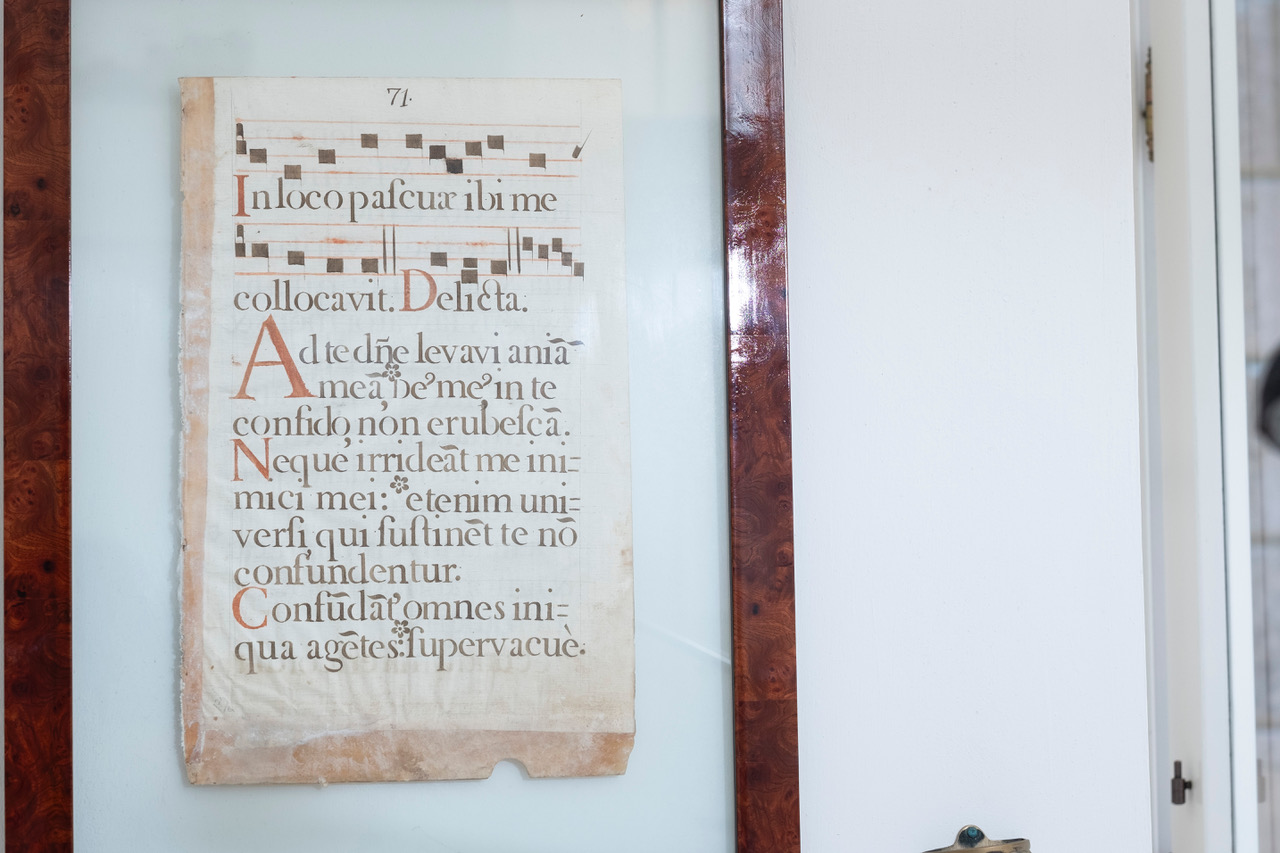 71.
In loco paſcuæ ibi me
collocavit. Delicta.
Ad te dñe levavi aniã
meã, De᾿ me᾿ in te
confido, non erubeſcã.
Neque irrideãt me ini=
mici mei: etenim uni=
verſi, qui ſuſtinẽt te nõ
confundentur.
Confũdãt᾿ omnes ini=
qua agẽtes: ſupervacuè.